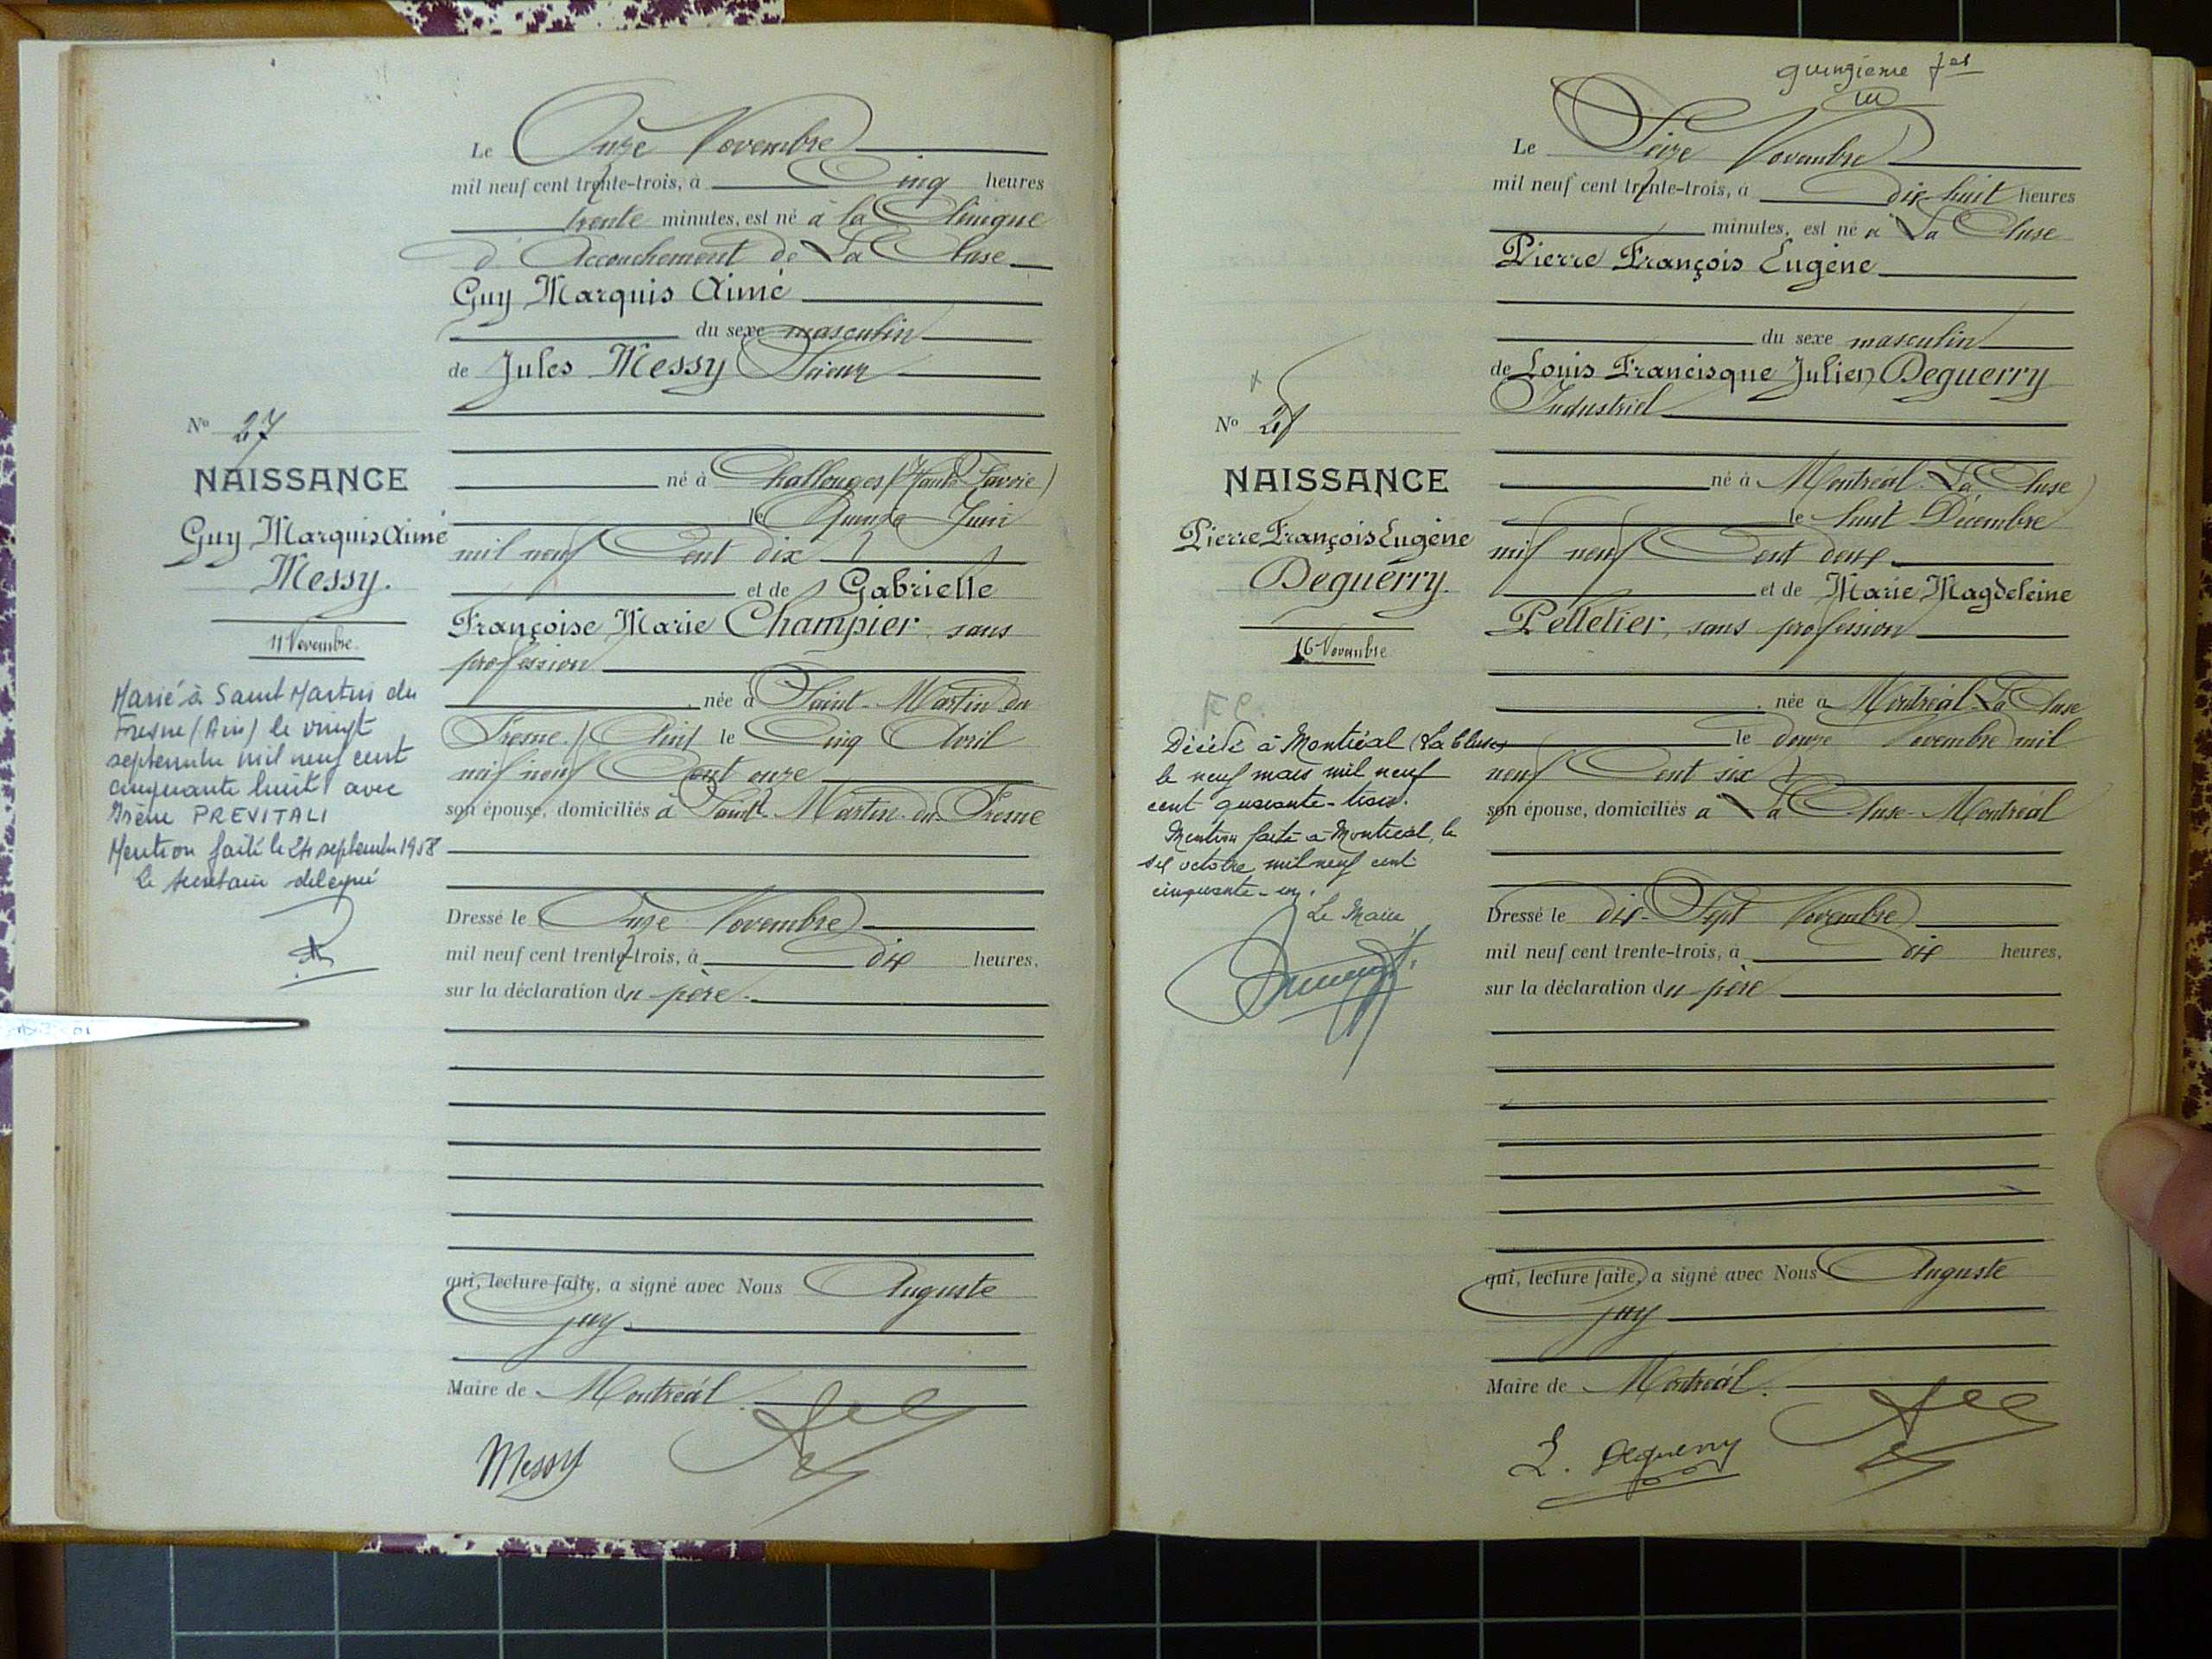 Le Onze Novembre
mil neuf cent trente-trois, à Cinq heures
trente minutes, est né à la Clinique
d'Accouchement de La Cluse
Guy Marquis Aimé
du sexe masculin
de Jules Messy Scieur
né à Challonges (Haute Savoie)
le Juin
mil neuf Cent dix
et de Gabrielle
Françoise Marie Champier, sans
profession
née à Saint-Martin du
Fresne (Ain) le Cinq Avril
mil neuf Cent onze
son épouse, domiciliés à Saint-Martin-du-Fresne
Dressé le Onze Novembre
mil neuf cent trente-trois, à dix heures,
sur la déclaration du père.
qui, lecture faite, a signé avec Nous Auguste
Juy
Maire de Montréal.
Messy
No 27
NAISSANCE
Guy Marquis Aimé
Messy.
11 Novembre
Marié à Saint Martin du
Fresne (Ain) le vingt
septembre mil neuf cent
cinquante huit avec
Irène PREVITALI
Mention faite le 24 septembre 1958
Le secrétaire délégué
quinzième
Le Seize Novembre
mil neuf cent trente-trois, à dix-huit heures
minutes, est né à La Cluse
Pierre François Eugène
du sexe masculin
de Louis Francisque Julien Deguerry
Industriel
né à Montréal-La Cluse
le huit Décembre
mil neuf Cent deux
et de Marie Magdeleine
Pelletier, sans profession
née à Montréal-La Cluse
le douze Novembre mil
neuf Cent six
son épouse, domiciliés à La Cluse-Montréal
Dressé le dix-Sept Novembre
mil neuf cent trente-trois, à dix heures,
sur la déclaration du père
qui, lecture faite, a signé avec Nous Auguste
Juy
Maire de Montréal.
L. Deguerry
No 28
NAISSANCE
Pierre François Eugène
Deguerry.
16 Novembre
Décédé à Montréal (La Cluse)
le neuf mars mil neuf
cent quarante-trois.
Mention faite à Montréal, le
six octobre mil neuf cent
cinquante-un.
Le Maire